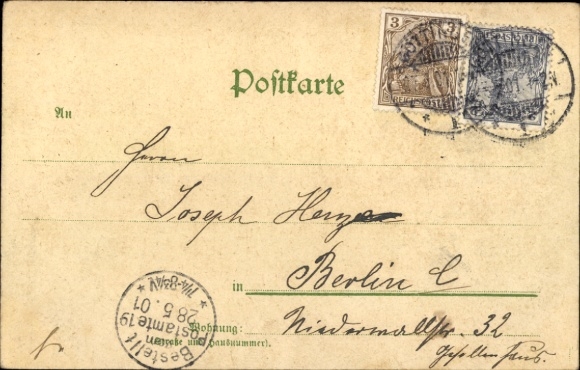 Postkarte
3
An
Herrn
Joseph Herz
in Berlin C
Wohnung: Niederwallstr. 32
(Straße und Hausnummer).
Gesellenhaus.
Bestellt
vom
Postamte 19
28.5.01
7¼-8¼V